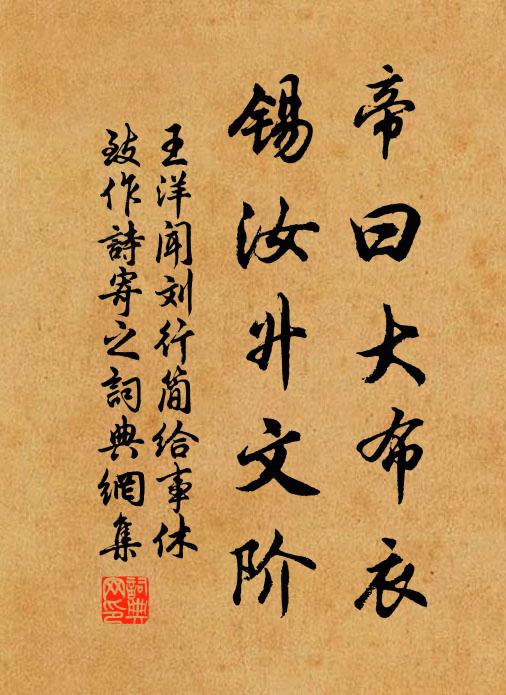 帝曰大布衣
锡汝升文阶
王洋闻刘行简给事休
致作詩寄之词典網集
詞典网印